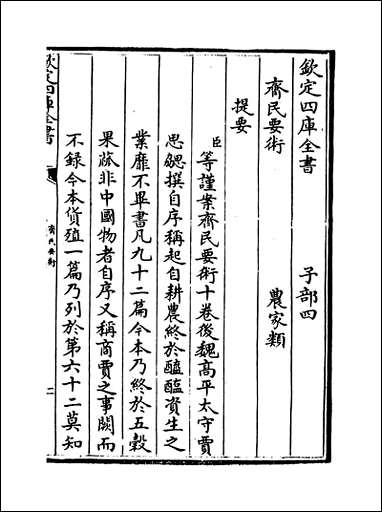 欽定四庫全書 子部四
齊民要術 農家類
提要
臣等謹案齊民要術十卷後魏高平太守賈
思勰撰自序稱起自耕農終於醯醢資生之
業靡不畢書凡九十二篇今本乃終於五穀
果蓏非中國物者自序又稱商賈之事闕而
不録今本貨殖一篇乃列於第六十二莫知
欽定四庫全書
齊民要術